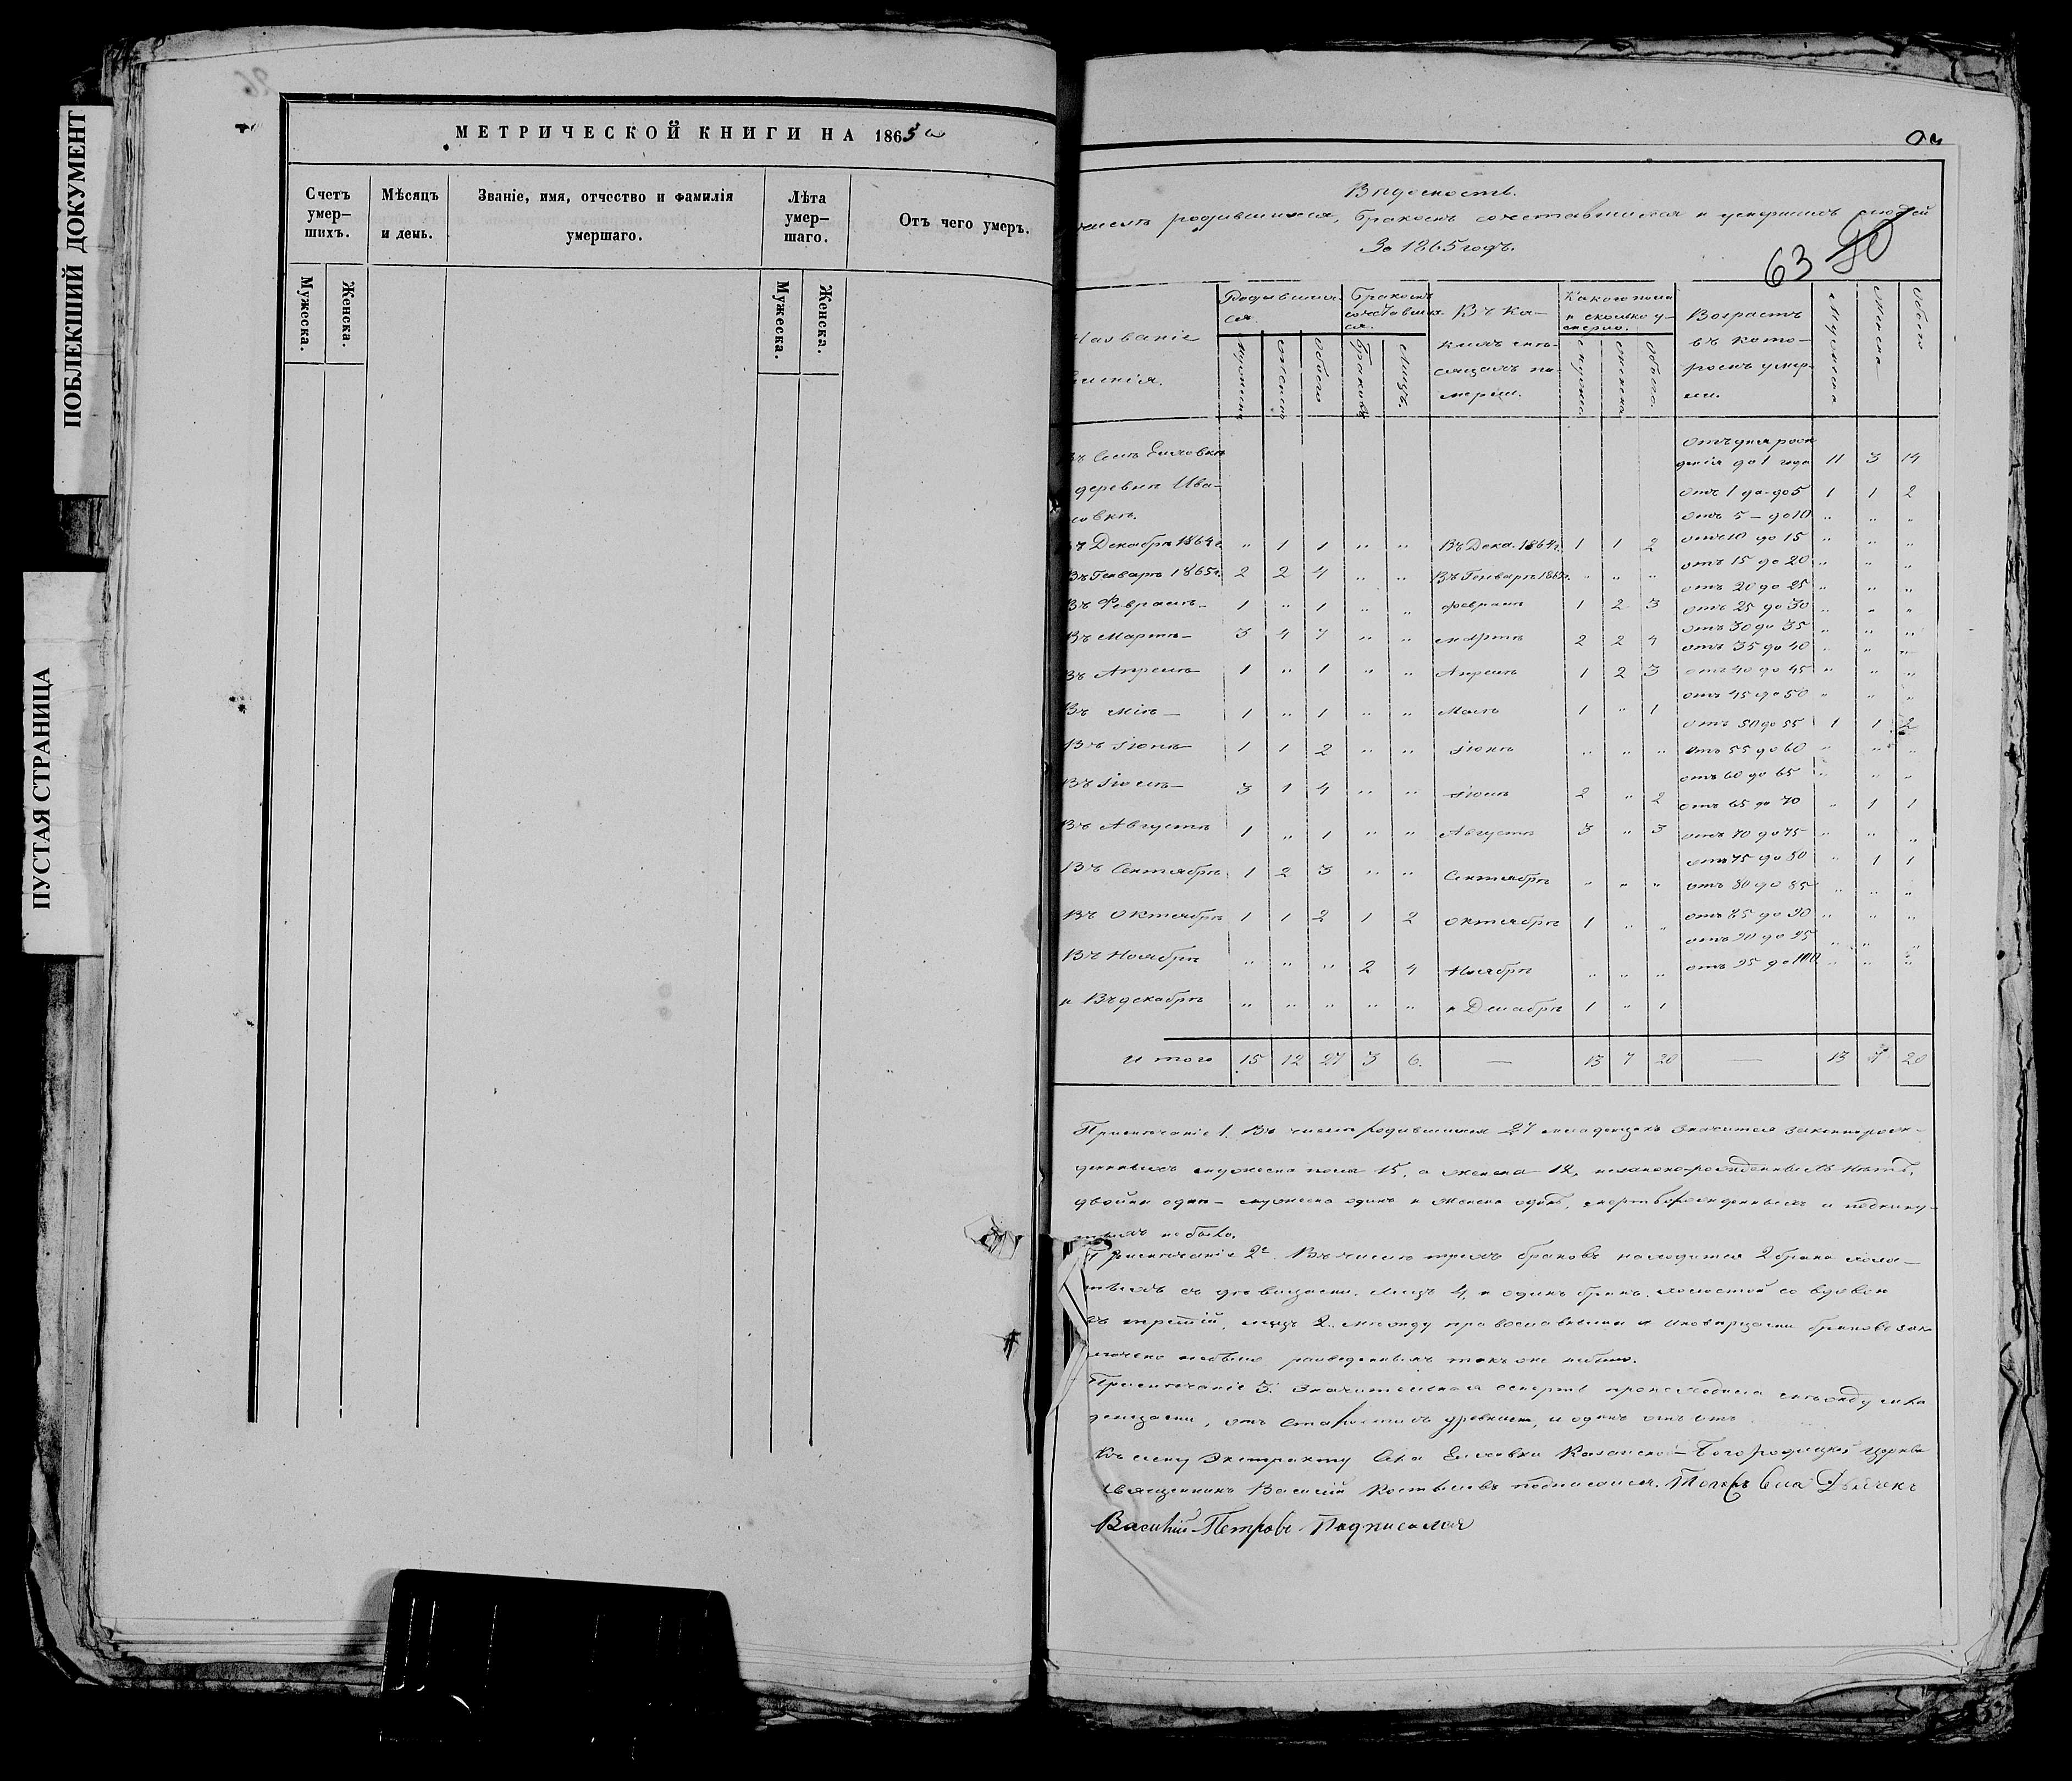 ПОБЛЕКШИЙ ДОКУМЕНТ
ПУСТАЯ СТРАНИЦА
МЕТРИЧЕСКОЙ КНИГИ НА 1865
Счетъ умер-
шихъ.
Мужеска.
Женска.
Мѣсяцъ
и день.
Званіе, имя, отчество и фамилія
умершаго.
Лѣта
умер-
шаго.
Мужеска.
Женска.
Отъ чего умеръ.
Вѣдомость
родившихся, бракомъ сочетавшихся и умершихъ людей
За 1865 годъ.
63 90
Названіе
Родивши-
ся.
Бракомъ
сочетавши-
ся.
Въ ка-
кихъ мѣ-
сяцахъ по-
мерли.
Какого пола
и сколько у-
мерло.
Возрастъ
въ кото-
ромъ умер-
ли.
Мужеска
Женска
Обоего
мужеска
женска
обоего
Браковъ
Лицъ.
мужеска
женска
обоего.
деревнѣ Ива-
совкѣ.
отъ дня рож
денія до 1 года 11 3 14
отъ 1 до - до 5 1 1 2
отъ 5 - до 10 " " "
отъ 10 до 15 " " "
отъ 15 до 20 " " "
отъ 20 до 25 " " "
отъ 25 до 30 " " "
отъ 30 до 35 " " "
отъ 35 до 40 " " "
отъ 40 до 45 " " "
отъ 45 до 50 " " "
отъ 50 до 55 1 1 2
отъ 55 до 60 " " "
отъ 60 до 65 " " "
отъ 65 до 70 " 1 1
отъ 70 до 75 " " "
отъ 75 до 80 " 1 1
отъ 80 до 85 " " "
отъ 85 до 90 " " "
отъ 90 до 95 " " "
отъ 95 до 100 " " "
Въ Декабрѣ 1864 г. " 1 1 " " Въ Дека. 1864 г. 1 1 2
Въ Генварѣ 1865 г. 2 2 4 " " Въ Генварѣ 1865 г. " " "
Въ Февралѣ - 1 " 1 " " Февралѣ 1 2 3
Въ Мартѣ - 3 4 7 " " мартѣ 2 2 4
Въ Апрелѣ - 1 " 1 " " Апрелѣ 1 2 3
Въ Маѣ - 1 " 1 " " Маѣ 1 " 1
Въ Іюнѣ 1 1 2 " " Іюнѣ " " "
Въ Іюлѣ - 3 1 4 " " Іюлѣ 2 " 2
Въ Августѣ 1 " 1 " " Августѣ 3 " 3
Въ Сентябрѣ 1 2 3 " " Сентябрѣ " " "
Въ Октябрѣ 1 1 2 1 2 Октябрѣ 1 " "
Въ Ноябрѣ " " " 2 4 Ноябрѣ " " "
и Въ декабрѣ " " " " " и Декабрѣ 1 " 1
И того 15 12 27 3 6. — 13 7 20 — 13 7 20
Примѣчаніе 1. Въ числѣ родившихся 27 младенцахъ значится законнорож-
денныхъ мужеска пола 15, а женска 12, незаконно-рожденныхъ нѣтъ,
двойни одни - мужеска одинъ и женска одинъ, мертворожденныхъ и подкину-
тыхъ не было.
Примѣчаніе 2е. Въ числѣ трехъ браковъ находится 2 брака холо-
стыхъ съ дѣвицами. лицъ 4, и одинъ бракъ. холостой со вдовой
лицъ 2. между православными и иновѣрцами браковъ зак
лючено небыло разведенныхъ также небыло.
Примѣчаніе 3. Значительная смерть происходила между мла
денцами, отъ старости
Къ сему Экстракту Села Казанско-Богородицкой церкви
священникъ Василій подписался. Тогожъ Села Дьячекъ
Василій Петровъ Подписался